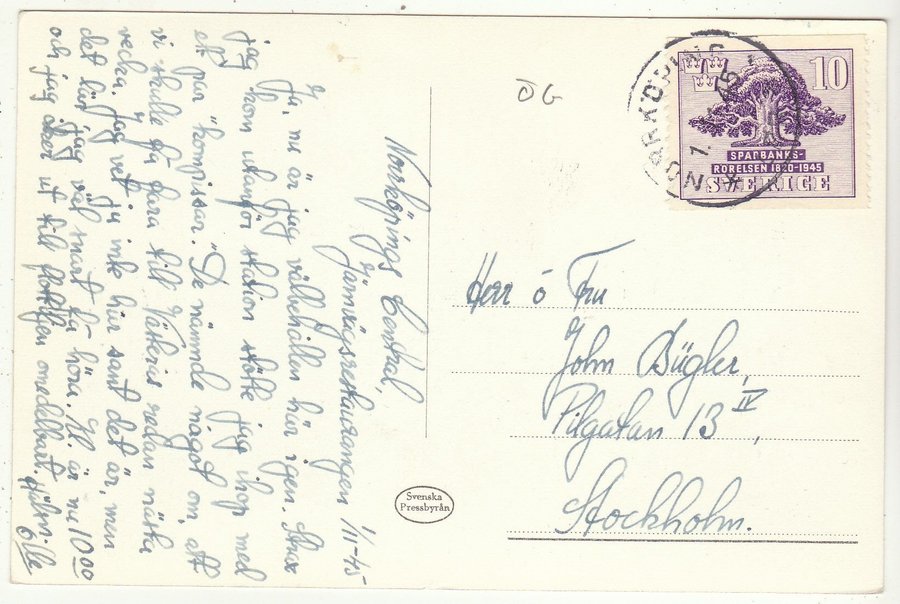 Norrköpings Central,
Järnvägsrestaurangen 1/11-45
Ja, nu är jag välbehållen här igen. Strax
jag kom utanför station stötte jag ihop med
ett par kompisar. De nämnde något om att
vi skulle få fara till Västerås redan nästa
vecka. Jag vet ju inte hur sant det är, men
det lär jag väl snart få höra. Kl är nu 10 00
och jag åker ut till flottiljen omedelbart. Hälsn. Olle
ÖG
NORRKÖPING
10
SPARBANKS-
RÖRELSEN 1820-1945
SVERIGE
Herr o Fru
John Bügler,
Pilgatan 13 IV,
Stockholm.
Svenska
Pressbyrån